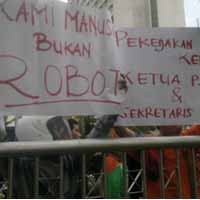 KAMI MANUS
BUKAN
ROBOT
PEKERJAKAN
KE
KETUA P
&
SEKRETARIS